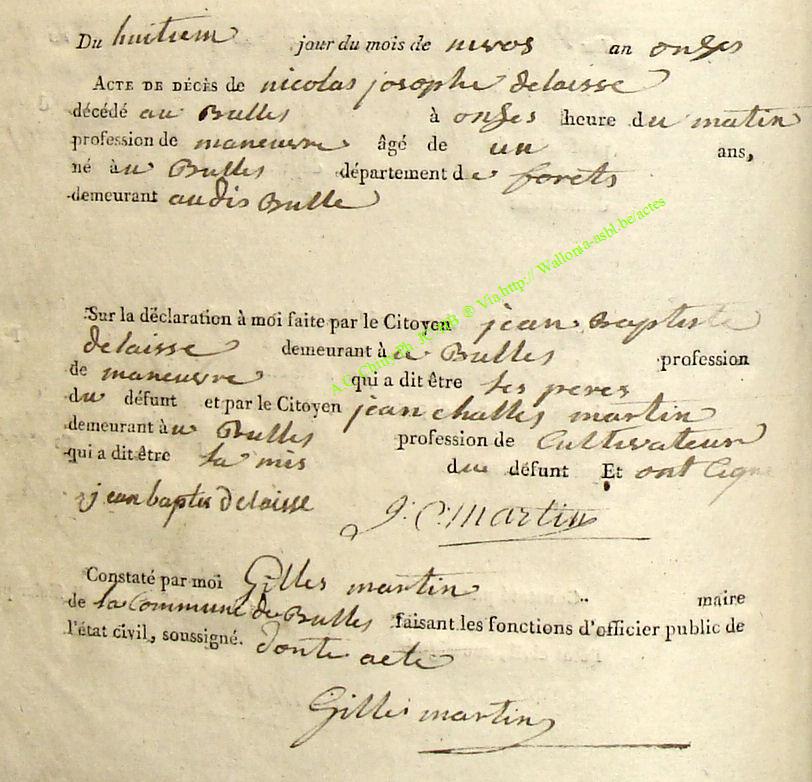 Du huitiem jour du mois de nivos an onzes
ACTE DE DÉCÈS de nicolas josophe delaisse
décédé au Bulles à onzes heure du matin
profession de maneuvre âgé de un ans,
né àu Bulles département de forets
demeurant audis Bulle
Sur la déclaration à moi faite par le Citoyen jean Baptiste
delaisse demeurant à u Bulles profession
de maneuvre qui a dit être ses peres
du défunt et par le Citoyen jean challes martin
demeurant àu Bulles profession de Cultivateur
qui a dit être sa mis due défunt Et ont Cigne
jean baptis delaisse J: C: martin
Constaté par moi Gilles martin maire
de la Commune du Bulles faisant les fonctions d'officier public de
l'état civil, soussigné. donte acte
Gilles martin
Via http:// Wallonia-asbl.be/actes